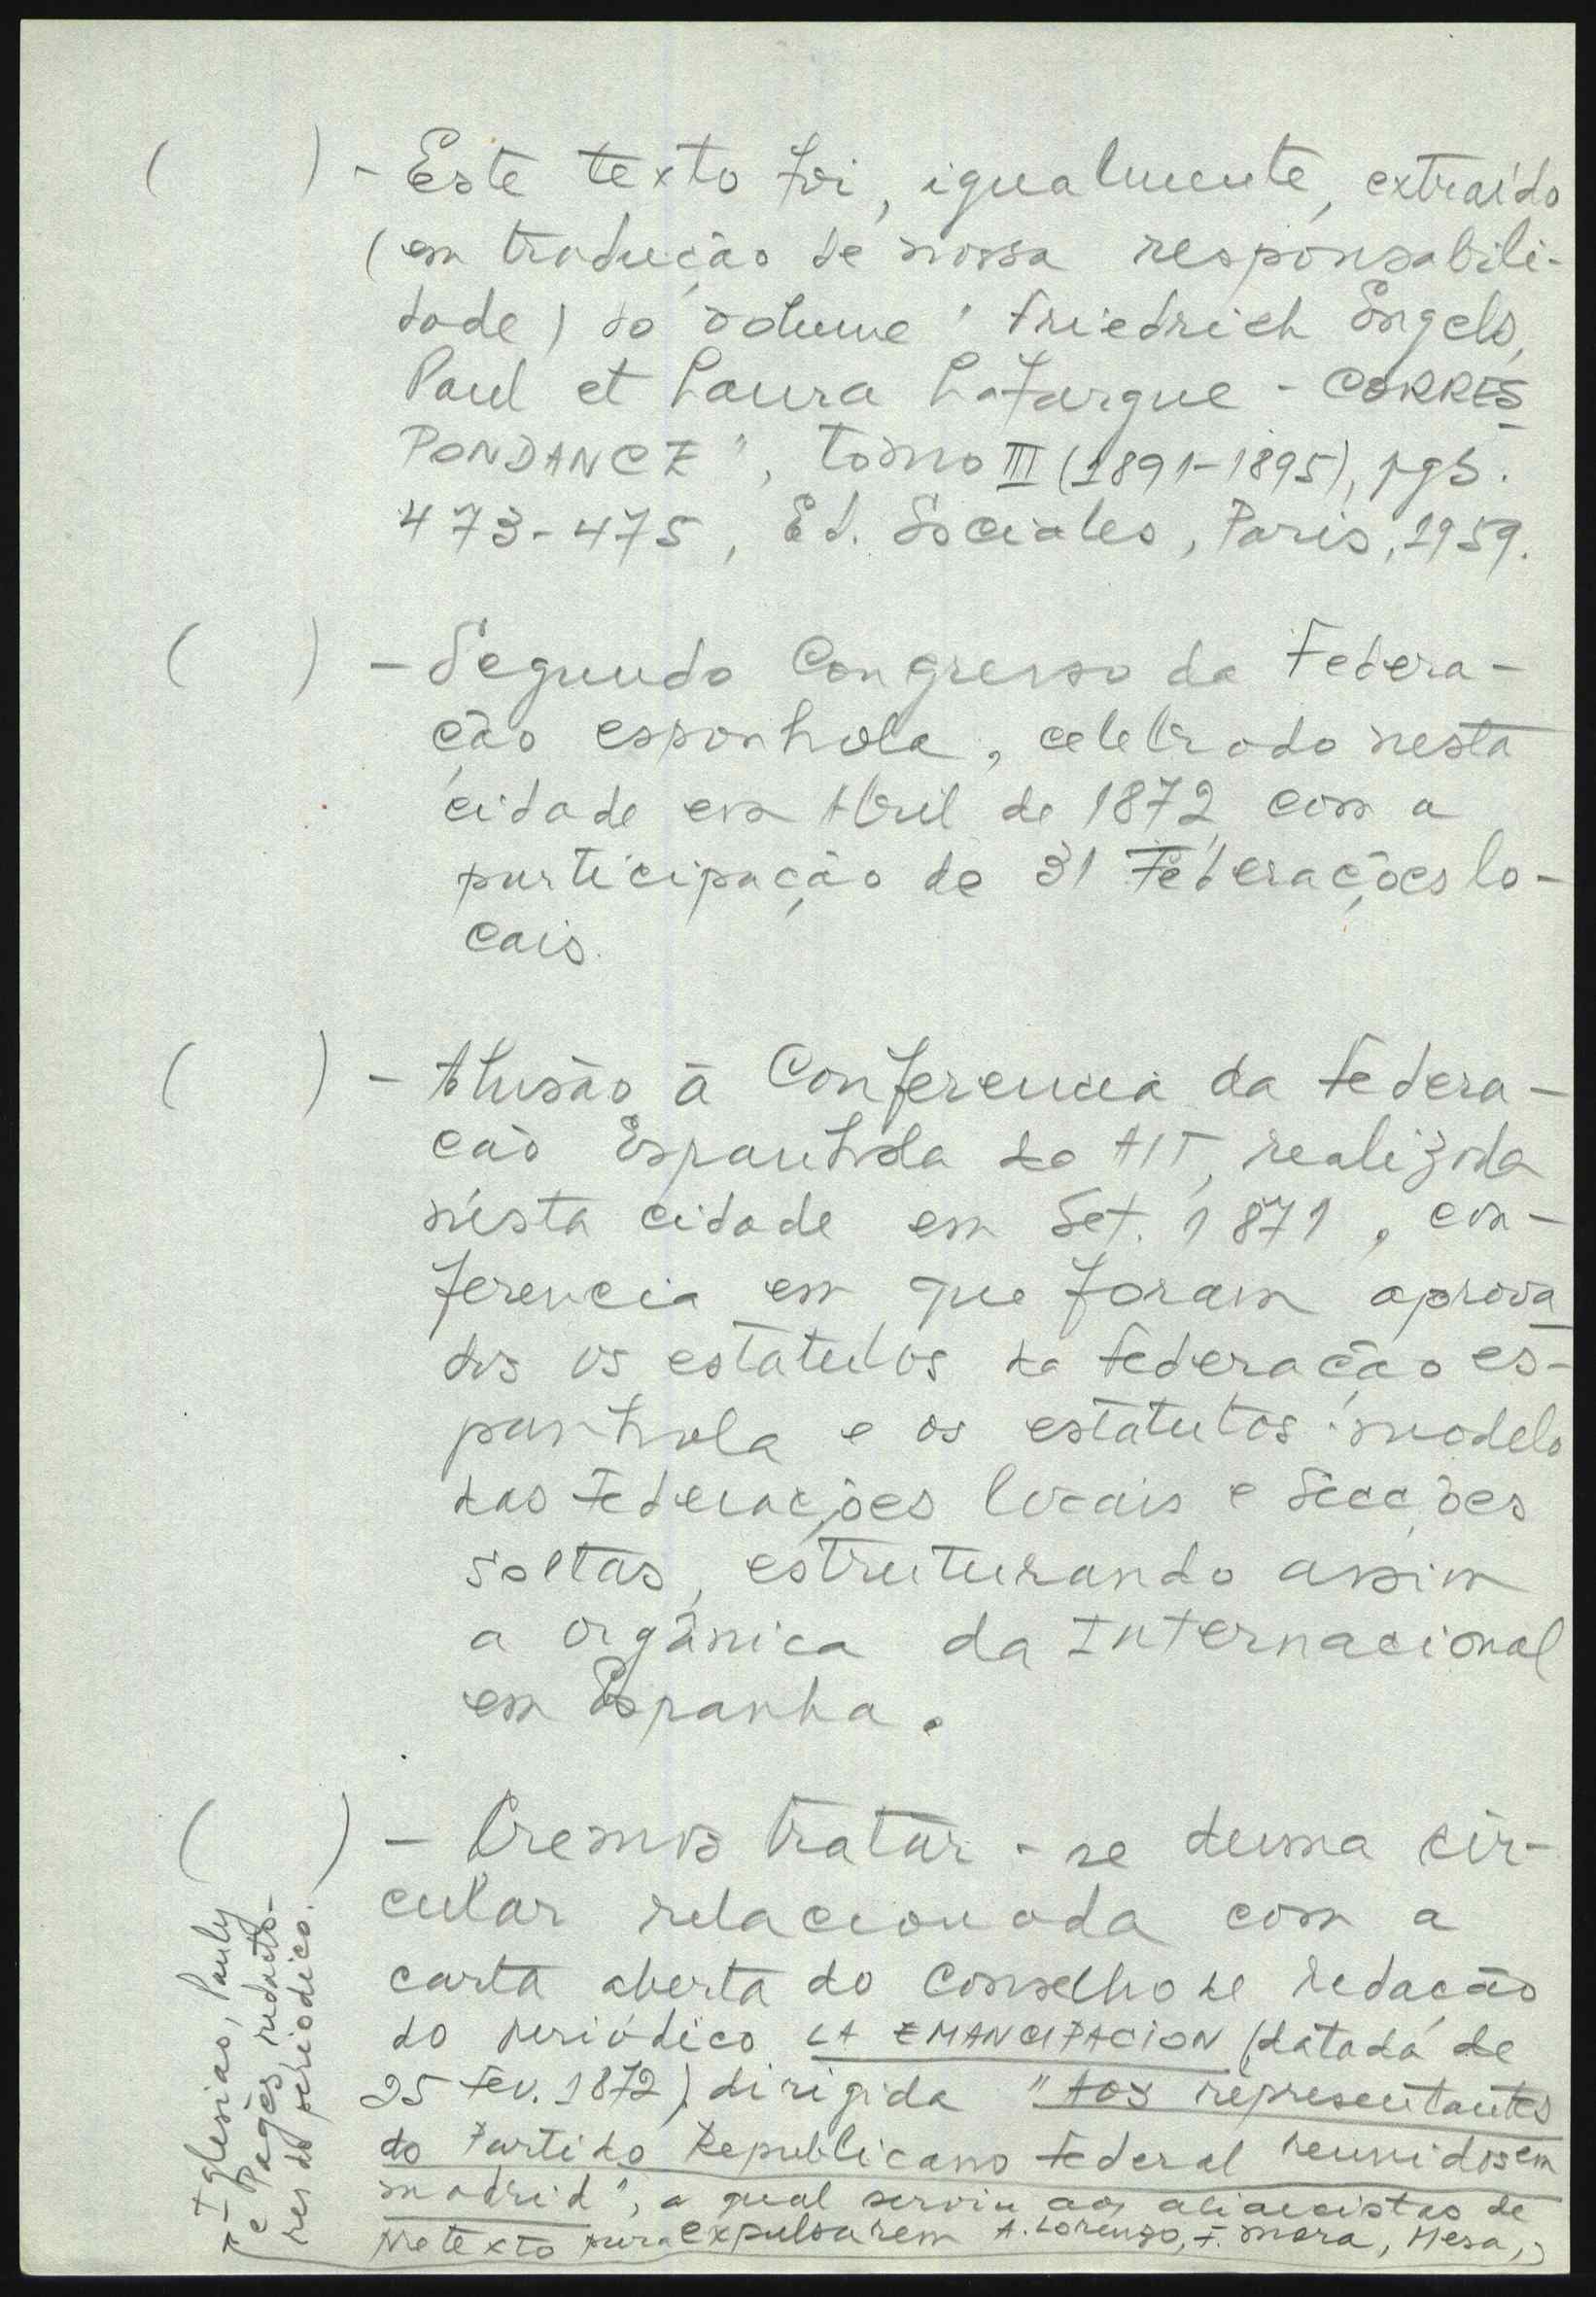 ( ) - Este texto foi, igualmente, extraído
(em tradução de nossa responsabili-
dade) do volume "Friedrich Engels,
Paul et Laura Lafargue - CORRES
PONDANCE", tomo III (1891-1895), pgs.
473-475, Ed. Sociales, Paris, 1959.
( ) - Segundo Congresso da Federa-
ção espanhola, celebrado nesta
cidade em Abril de 1872, com a
participação de 31 Federações lo-
cais.
( ) - Alusão à Conferencia da Federa-
ção Espanhola da AIT, realizada
nesta cidade em Set. 1871, con-
ferencia em que foram aprova
dos os estatutos da Federação es-
panhola e os estatutos-modelo
das Federações locais e Secções
soltas, estruturando assim
a orgânica da Internacional
em Espanha.
( ) - Cremos tratar-se duma cir-
cular relacionada com a
carta aberta do Conselho de redação
do periódico LA EMANCIPACION (datada de
25 Fev. 1872), dirigida "Aos representantes
do Partido Republicano Federal reunidos em
Madrid", a qual serviu aos aliancistas de
pretexto para expulsarem A. Lorenzo, F. Mora, Mesa,
Iglesias, Pauly
e Pagès, redacto-
res do periodico.